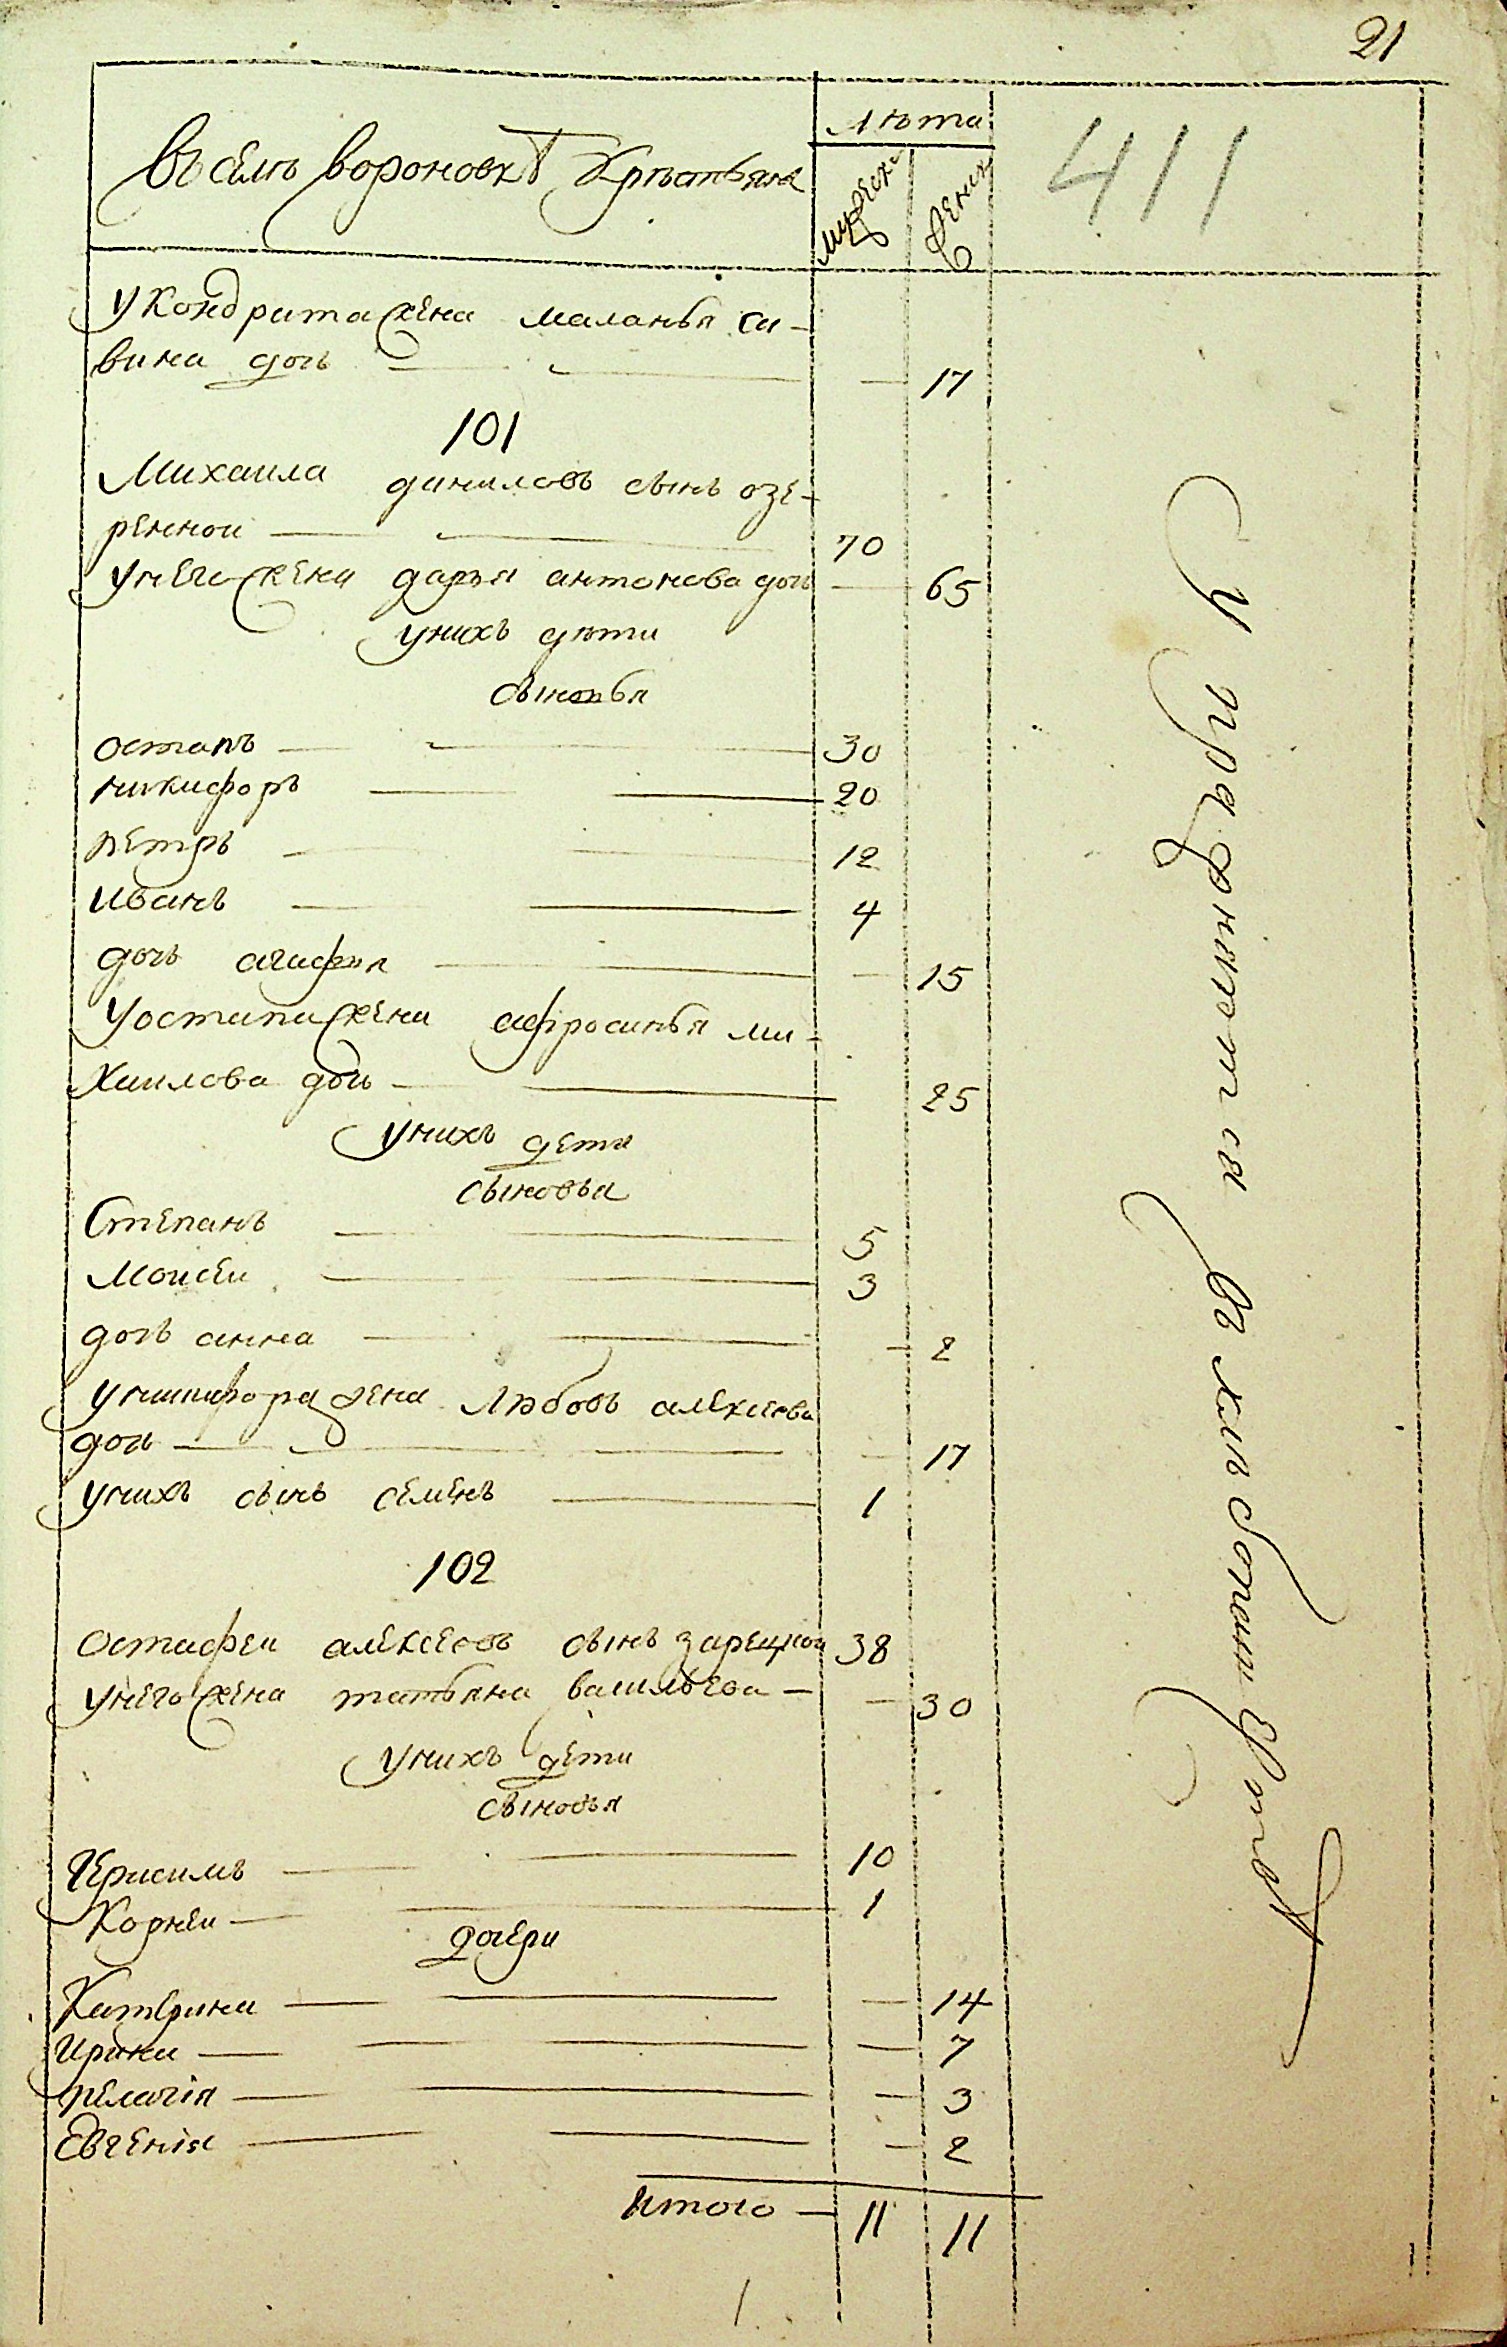 21
въ селе вороновке Крѣстьяне
лѣта
мужеска
женска
411
у Кондрата жена маланья са-
вина дочь — 17
101
Михаила данилов сынъ озе-
ренной — 70
у него жена дарья антонова дочь — 65
у нихъ дѣти
сыновья
остапъ — 30
никифоръ — 20
петръ — 12
иванъ — 4
дочь агафья — 15
у остапа жена афросинья ми-
хаилова дочь — 25
у нихъ дети
сыновья
Степанъ — 5
Моисеи — 3
дочь анна — 2
у никифора жена любовь алексеева
дочь — 17
у нихъ сынъ семенъ — 1
102
остафеи алексеевъ сынъ зарецкои 38
у него жена татьяна васильева — 30
у нихъ дети
сыновья
Герасимъ — 10
Корнеи — 1
дочери
Катерина — 14
ирина — 7
пелагія — 3
Евгенія — 2
итого — 11 11